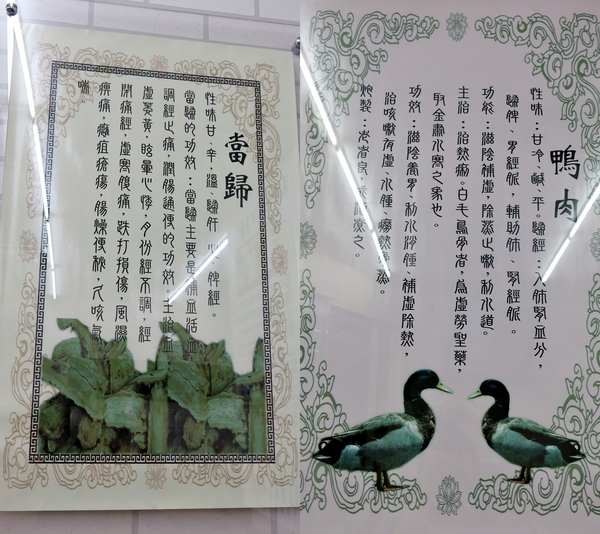 當歸
性味甘、辛、溫、歸肝、心、脾經。
當歸的功效：當歸主要是補血活血
調經止痛、潤腸通便的功效。主治血
虛萎黃，眩暈心悸，月份經不調，經
閉痛經，虛寒腹痛，跌打損傷，風濕
痹痛，癰疽瘡瘍，腸燥便秘，久咳氣
喘。
鴨肉
性味：甘冷、鹹、平。歸經：入肺腎血分，
歸脾、胃經脈，輔助肺、腎經脈。
功能：滋陰補虛，除蒸止嗽，利水道。
主治：治熱痢。白毛烏骨者，為虛勞聖藥，
取金肅水寒之象也。
功效：滋陰養胃、利水消腫、補虛除熱，
治咳嗽、虛、水腫、癆熱骨蒸。
炮製：老者良，之。